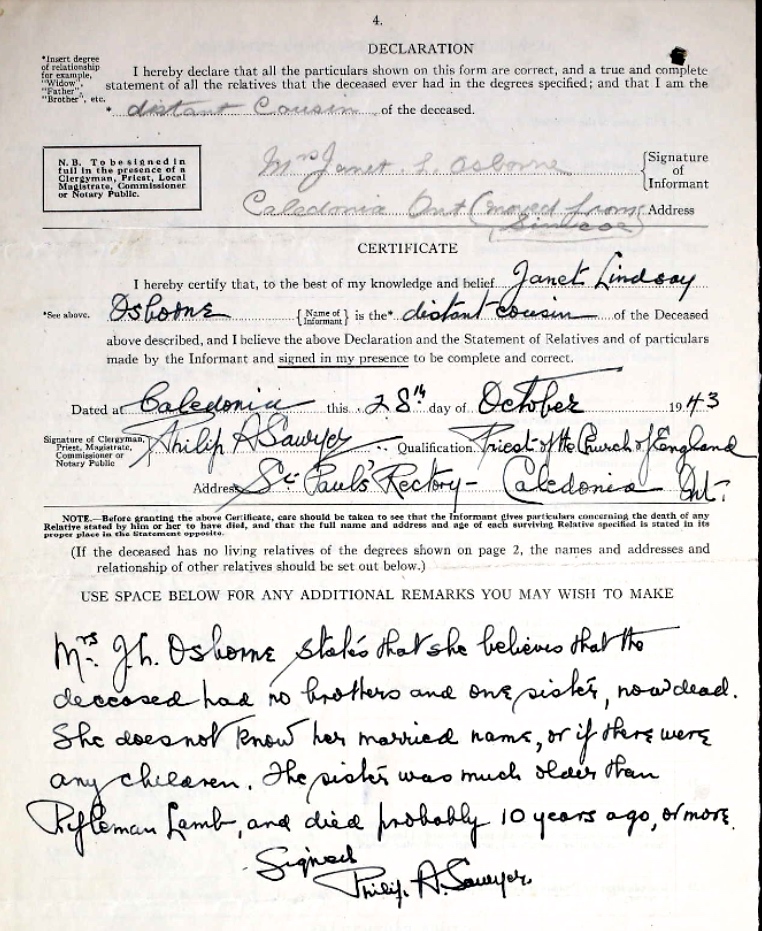 4.
DECLARATION
*Insert degree
of relationship
for example,
"Widow"
"Father",
"Brother", etc.
I hereby declare that all the particulars shown on this form are correct, and a true and complete
statement of all the relatives that the deceased ever had in the degrees specified; and that I am the
* distant Cousin of the deceased.
N.B. To be signed in
full in the presence of a
Clergyman, Priest, Local
Magistrate, Commissioner
or Notary Public.
Mrs Janet L. Osborne {Signature of Informant
Caledonia Ont (moved from Simcoe) Address
CERTIFICATE
I hereby certify that, to the best of my knowledge and belief Janet Lindsay
*See above. Osborne {Name of Informant} is the* distant cousin of the Deceased
above described, and I believe the above Declaration and the Statement of Relatives and of particulars
made by the Informant and signed in my presence to be complete and correct.
Dated at Caledonia this 28th day of October 1943
Signature of Clergyman, Priest, Magistrate, Commissioner or Notary Public Philip A Sawyer Qualification Priest of the Church of England
Address St Pauls' Rectory - Caledonia Ont.
NOTE.—Before granting the above Certificate, care should be taken to see that the Informant gives particulars concerning the death of any
Relative stated by him or her to have died, and that the full name and address and age of each surviving Relative specified is stated in its
proper place in the Statement opposite.
(If the deceased has no living relatives of the degrees shown on page 2, the names and addresses and
relationship of other relatives should be set out below.)
USE SPACE BELOW FOR ANY ADDITIONAL REMARKS YOU MAY WISH TO MAKE
Mrs. J.L. Osborne states that she believes that the
deceased had no brothers and one sister, now dead.
She does not know her married name, or if there were
any children. The sister was much older than
Rifleman Lamb, and died probably 10 years ago, or more.
Signed
Philip A. Sawyer.